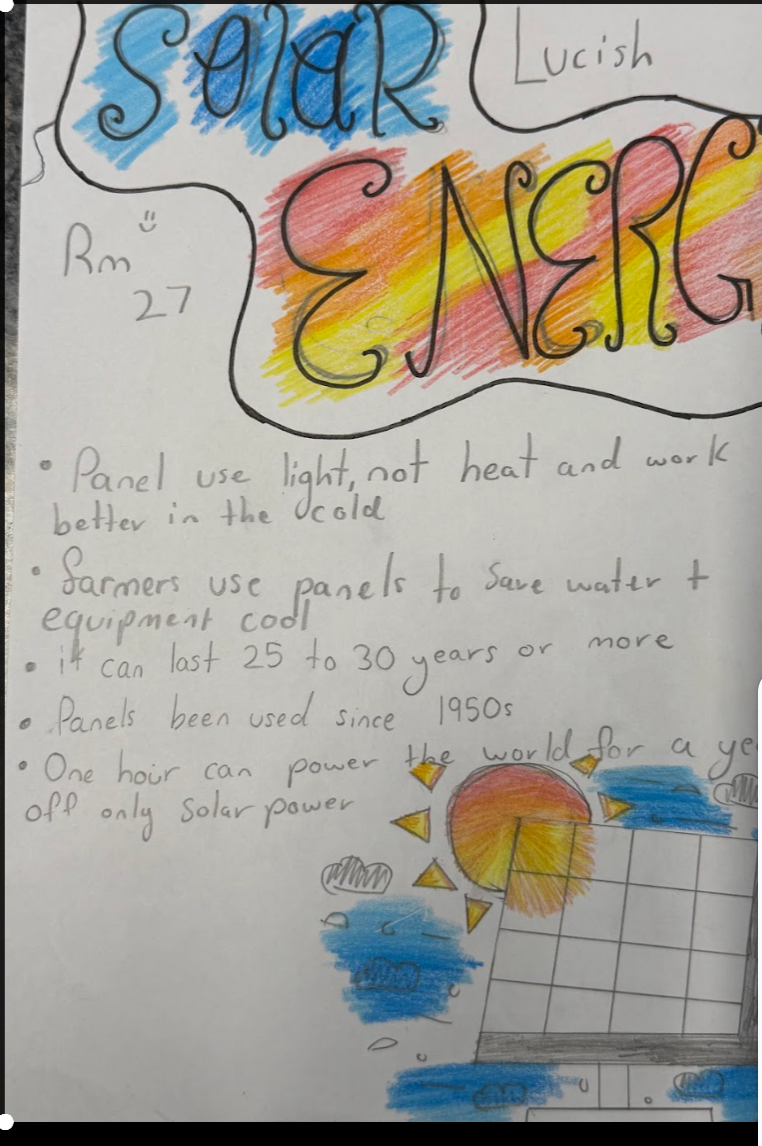 Solar
Lucish
ENERG
Rm
27
• Panel use light, not heat and work
better in the cold
• farmers use panels to save water +
equipment cool
• it can last 25 to 30 years or more
• Panels been used since 1950s
• One hour can power the world for a ye
off only solar power